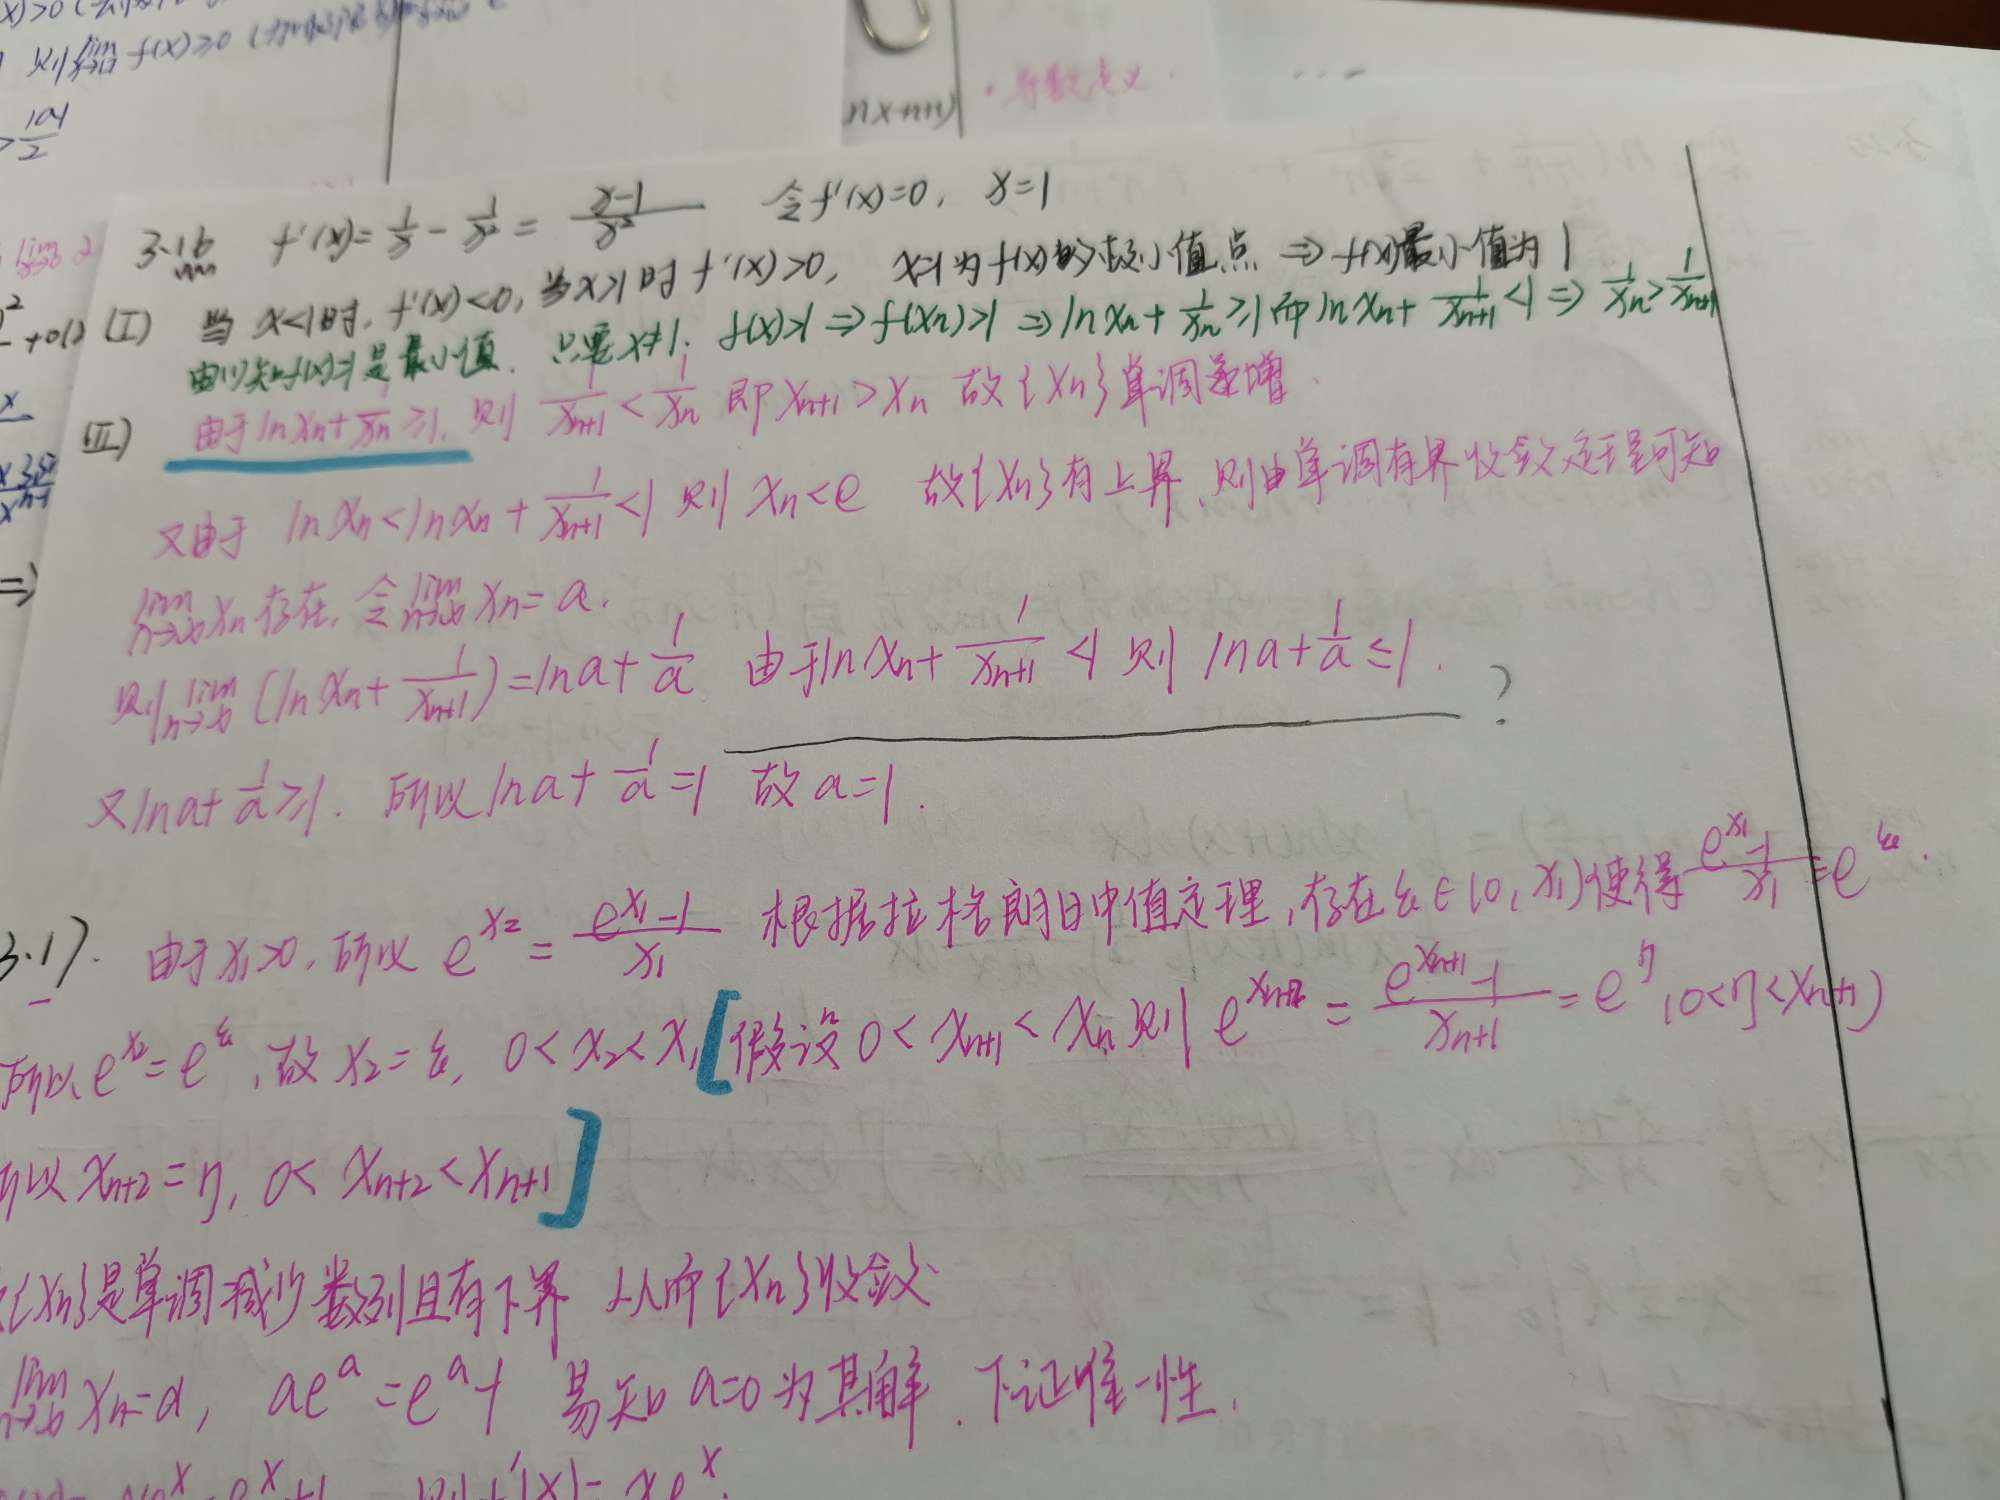 则lim f(x)≥0
lim 2
nx+n+1)
· 导数定义
3.16 f'(x)=1/x - 1/x² = (x-1)/x² 令f'(x)=0, x=1
(I) 当x<1时, f'(x)<0, 当x>1时f'(x)>0, x=1为f(x)的极小值点 ⇒ f(x)最小值为1
由(1)知f(x)=1是最小值. 只要x≠1. f(x)>1 ⇒ f(xn)>1 ⇒ ln xn + 1/xn ≥1 而 ln xn + 1/xn+1 <1 ⇒ 1/xn > 1/xn+1
(II) 由于ln xn + 1/xn ≥1, 则 1/xn+1 < 1/xn 即 xn+1 > xn 故{xn}单调递增.
又由于 ln xn < ln xn + 1/xn+1 <1 则 xn<e 故{xn}有上界, 则由单调有界收敛定理可知
lim n→∞ xn存在, 令lim n→∞ xn=a.
则lim n→∞ (ln xn + 1/xn+1) = ln a + 1/a 由于ln xn + 1/xn+1 <1 则 ln a + 1/a ≤1. ?
又ln a + 1/a ≥1. 所以 ln a + 1/a =1 故a=1.
3.17. 由于x₁>0, 所以 e^x₂ = (e^x₁-1)/x₁ 根据拉格朗日中值定理, 存在ξ∈(0, x₁)使得 (e^x₁-1)/x₁ = e^ξ.
所以 e^x₂=e^ξ, 故x₂=ξ, 0<x₂<x₁ [假设0<xn+1<xn 则 e^xn+2 = (e^xn+1 -1)/xn+1 = e^η, 0<η<xn+1)
所以 xn+2=η, 0<xn+2<xn+1]
{xn}是单调减少数列且有下界 从而{xn}收敛
lim n→∞ xn=a, ae^a=e^a-1 易知a=0为其解. 下证唯一性.
e^x+1 则f'(x)=xe^x.